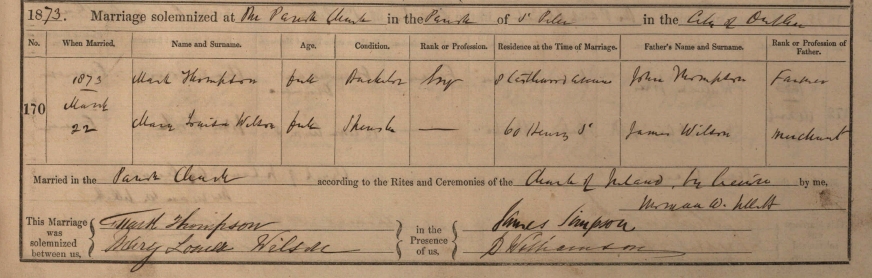 1873. Marriage solemnized at The Parish Church in the Parish of St Peter in the City of Dublin
No. When Married. Name and Surname. Age. Condition. Rank or Profession. Residence at the Time of Marriage. Father's Name and Surname. Rank or Profession of Father.
170 1873 March 22
Mark Thompson full Bachelor John Thompson Farmer
Mary Louisa Wilson full Spinster — 60 Henry St James Wilson Merchant
Married in the Parish Church according to the Rites and Ceremonies of the Church of Ireland, by License by me,
Norman W.
This Marriage was solemnized between us,
Mark Thompson
Mary Louisa Wilson
in the Presence of us.
James Simpson
D Williamson